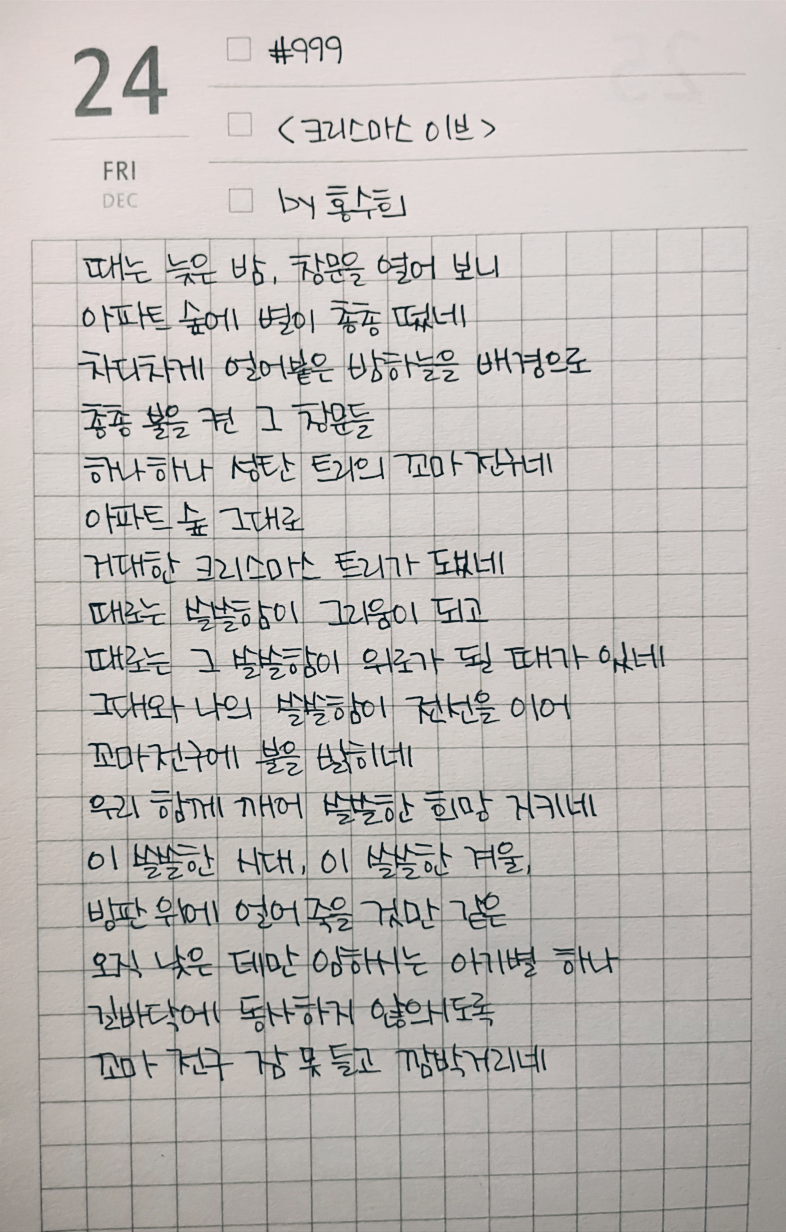 24
FRI
DEC
#999
<크리스마스 이브>
by 홍수희
때는 늦은 밤, 창문을 열어 보니
아파트 숲에 별이 총총 떴네
차디차게 얼어붙은 밤하늘을 배경으로
총총 불을 켠 그 창문들
하나하나 성탄 트리의 꼬마 전구네
아파트 숲 그대로
거대한 크리스마스 트리가 되었네
때로는 쓸쓸함이 그리움이 되고
때로는 그 쓸쓸함이 위로가 될 때가 있네
그대와 나의 쓸쓸함이 전선을 이어
꼬마전구에 불을 밝히네
우리 함께 깨어 쓸쓸한 희망 지키네
이 쓸쓸한 시대, 이 쓸쓸한 겨울,
빙판 위에 얼어 죽을 것만 같은
오직 낮은 데만 임하시는 아기별 하나
길바닥에 동사하지 않으시도록
꼬마 전구 잠 못 들고 깜박거리네